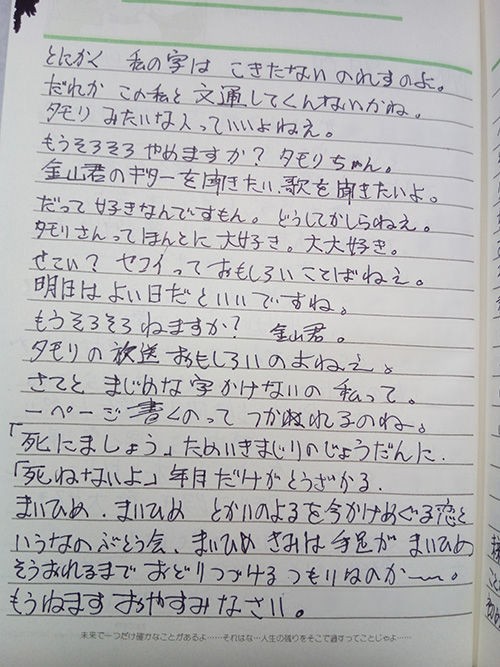 とにかく 私の字は こきたない のれすのよ。
だれか この私と 文通してくんないかね。
タモリ みたいな人っていいよねえ。
もうそろそろ やめますか? タモリちゃん。
金山君のギターを聞きたい、歌を聞きたいよ。
だって 好きなんですもん。どうしてかしらねえ。
タモリさんってほんとに 大好き。大大好き。
せてい? セフイって おもしろい ことばねえ。
明日は よい日だと いいですね。
もうそろそろ ねますか? 金山君。
タモリの 放送 おもしろいのよねえ。
さてと まじめな 字 かけないの 私って。
一ページ 書くのって つかれれるのね。
「死にましょう」ためいきまじりの じょうだんに、
「死ねないよ」年月だけが とうざかる、
まいひめ、まいひめ とかいのよるを今かけめぐる恋と
いうなの ぶとう会、まいひめ きみは 手足が まいひめ
そうおれるまで おどりつづける つもりなのか〜〜。
もうねます おやすみなさい。
未来で一つだけ確かなことがあるよ……それはな…人生の残りをそこで過すってことじゃよ……